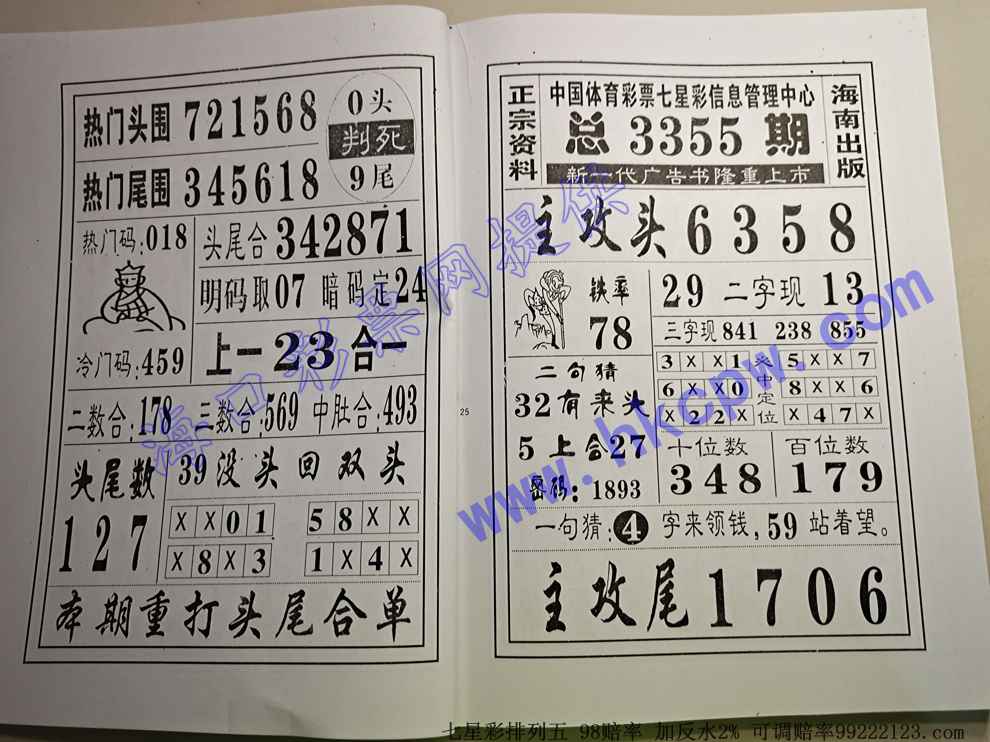 热门头围 721568
0头
判死
9尾
热门尾围 345618
热门码:018
头尾合 342871
明码取07 暗码定24
冷门码:459
上一23合一
二数合:178 三数合:569 中肚合:493
头尾数
127
39没头回双头
X X 0 1
5 8 X X
X 8 X 3
1 X 4 X
本期重打头尾合单
25
正宗资料
中国体育彩票七星彩信息管理中心
总3355期
新一代广告书隆重上市
海南出版
主攻头6358
铁率
78
29 二字现 13
三字现 841 238 855
3 X X 1
5 X X 7
6 X X 0
8 X X 6
X 2 2 X
X 4 7 X
中定位
二句猜
32有来头
5上合27
密码:1893
十位数
348
百位数
179
一句猜:4字来领钱,59站着望。
主攻尾1706
海口彩票网提供
www.hkcpw.com
七星彩排列五 98赔率 加反水2% 可调赔率99222123.com